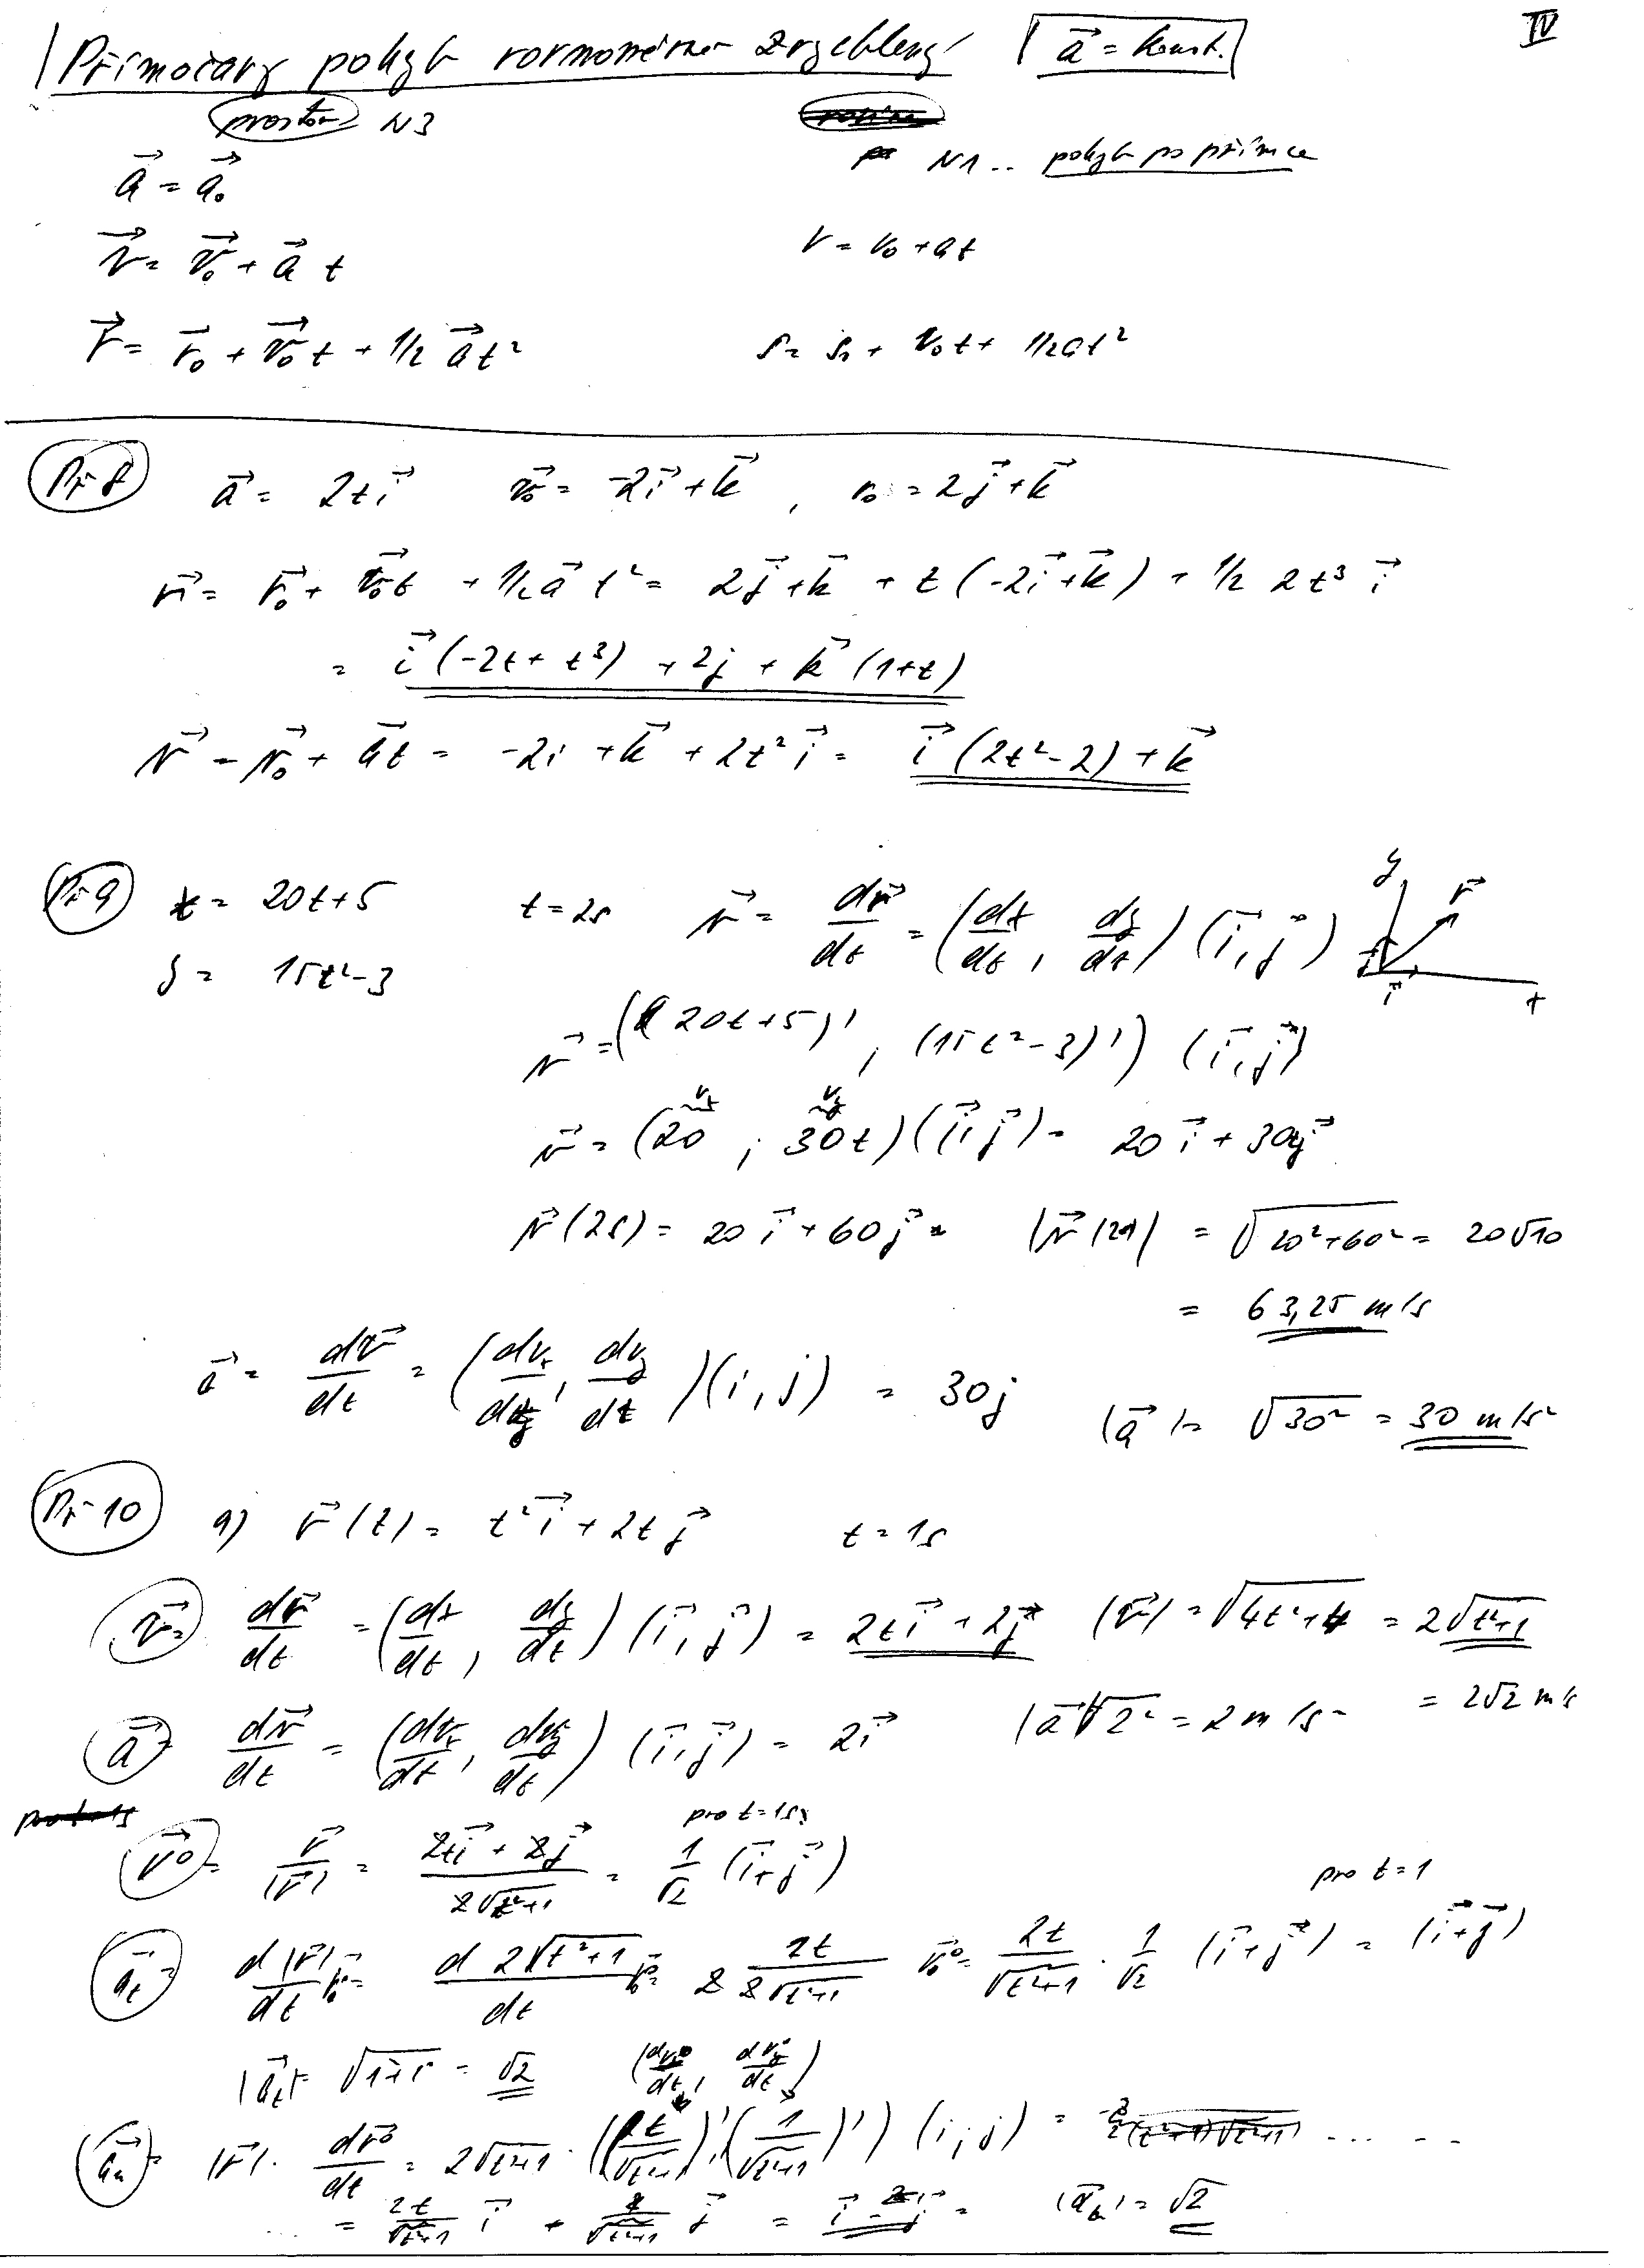 Přímočarý pohyb rovnoměrně zrychlený a⃗ = konst. IV
prostor N3
N1 .. pohyb po přímce
a⃗ = a⃗₀
v⃗ = v⃗₀ + a⃗ t v = v₀ + at
r⃗ = r⃗₀ + v⃗₀ t + 1/2 a⃗ t² s = s₀ + v₀t + 1/2at²
Př 8 a⃗ = 2t i⃗ v⃗₀ = -2i⃗ + k⃗ , r₀ = 2j⃗ + k⃗
r⃗ = r⃗₀ + v⃗₀t + 1/2 a⃗ t² = 2j⃗ + k⃗ + t (-2i⃗ + k⃗) + 1/2 2t³ i⃗
= i⃗ (-2t + t³) + 2j + k⃗ (1+t)
v⃗ = v⃗₀ + a⃗t = -2i + k⃗ + 2t² i⃗ = i⃗ (2t² - 2) + k⃗
Př 9 x = 20t + 5 t = 2s v⃗ = dr⃗/dt = (dx/dt, dy/dt) (i⃗, j⃗) y r⃗
y = 15t² - 3 i⃗ x
v⃗ = ((20t+5)' ; (15t² - 3)') (i⃗, j⃗)
vx vy
v⃗ = (20 ; 30t) (i⃗, j⃗) = 20 i⃗ + 30tj⃗
v⃗ (2s) = 20 i⃗ + 60 j⃗ |v⃗ (2s)| = √(20² + 60²) = 20√10
= 63,25 m/s
a⃗ = dv⃗/dt = (dvx/dt, dvy/dt) (i, j) = 30j |a⃗| = √30² = 30 m/s²
Př 10 a) r⃗ (t) = t² i⃗ + 2t j⃗ t = 1s
v⃗ = dr⃗/dt = (dx/dt, dy/dt) (i⃗, j⃗) = 2ti⃗ + 2j⃗ |v⃗| = √(4t² + 4) = 2√(t²+1)
= 2√2 m/s
a⃗ = dv⃗/dt = (dvx/dt, dvy/dt) (i⃗, j⃗) = 2i⃗ |a⃗| √2² = 2 m/s²
pro t = 1s
v⃗⁰ = v⃗/|v⃗| = (2ti⃗ + 2j⃗)/(2√(t²+1)) = 1/√2 (i⃗ + j⃗)
pro t = 1
a⃗t = d|v⃗|/dt v⃗⁰ = d 2√(t²+1)/dt v⃗⁰ = 2 2t/(2√(t²+1)) v⃗⁰ = 2t/√(t²+1) · 1/√2 (i⃗ + j⃗) = (i⃗ + j⃗)
|a⃗t| = √(1+1) = √2 (dvx⁰/dt, dvy⁰/dt)
a⃗n = |v⃗| · dv⃗⁰/dt = 2√(t²+1) · ((t/√(t²+1))', (1/√(t²+1))') (i, j) = .... . .
... = 2t/√(t²+1) i⃗ + 2/√(t²+1) j⃗ = i⃗ - j⃗ = |a⃗n| = √2